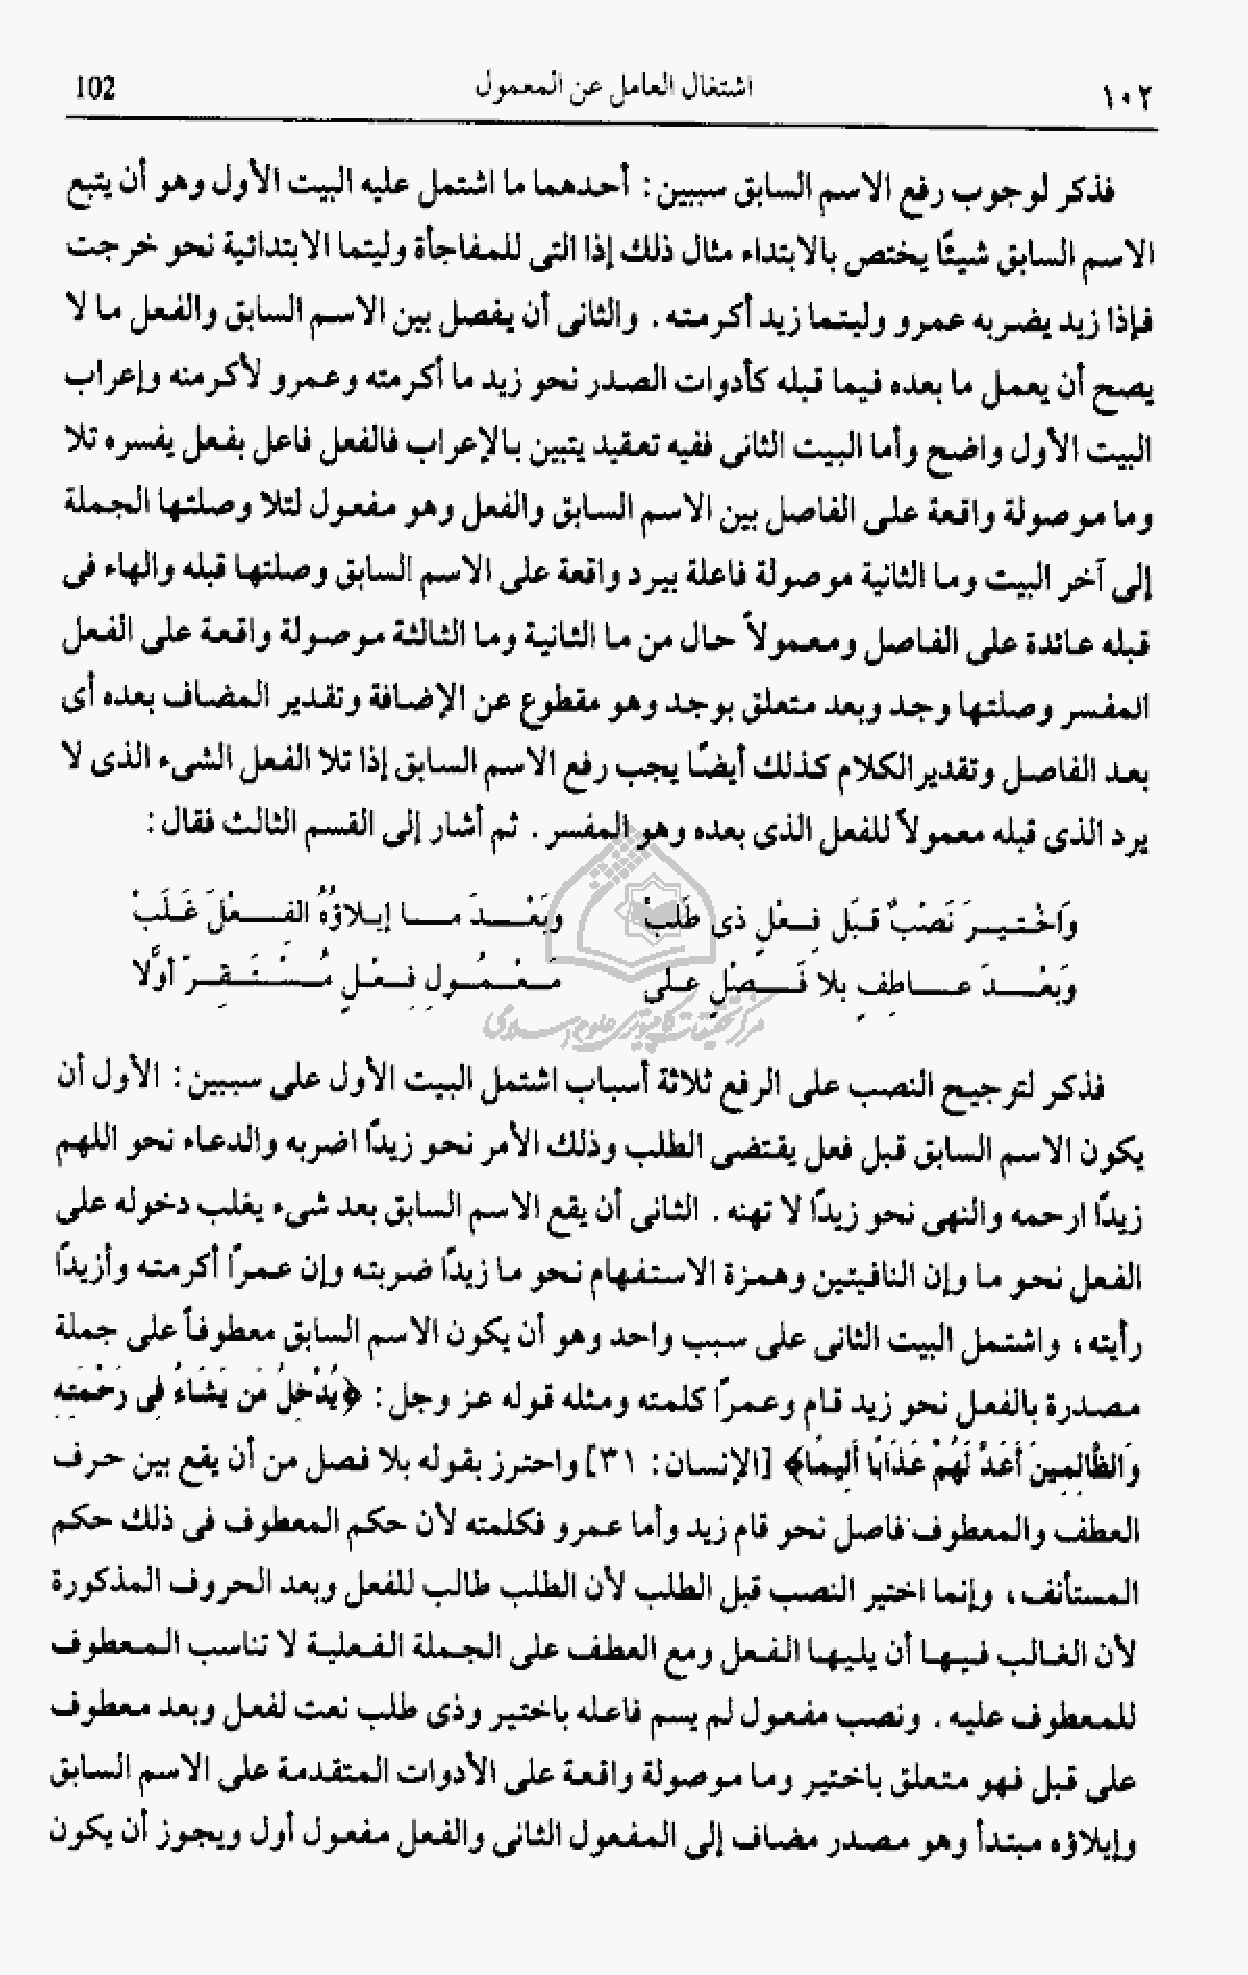 ١٠٢ اشتغال العامل عن المعمول 102
فذكر لوجوب رفع الاسم السابق سببين : أحدهما ما اشتمل عليه البيت الأول وهو أن يتبع
الاسم السابق شيئاً يختص بالابتداء مثال ذلك إذا التى للمفاجأة وليتما الابتدائية نحو خرجت
فإذا زيد يضربه عمرو وليتما زيد أكرمته . والثانى أن يفصل بين الاسم السابق والفعل ما لا
يصح أن يعمل ما بعده فيما قبله كأدوات الصدر نحو زيد ما أكرمته وعمرو لأكرمنه وإعراب
البيت الأول واضح وأما البيت الثانى ففيه تعقيد يتبين بالإعراب فالفعل فاعل بفعل يفسره تلا
وما موصولة واقعة على الفاصل بين الاسم السابق والفعل وهو مفعول لتلا وصلتها الجملة
إلى آخر البيت وما الثانية موصولة فاعلة بيرد واقعة على الاسم السابق وصلتها قبله والهاء فى
قبله عائدة على الفاصل ومعمولاً حال من ما الثانية وما الثالثة موصولة واقعة على الفعل
المفسر وصلتها وجد وبعد متعلق بوجد وهو مقطوع عن الإضافة وتقدير المضاف بعده أى
بعد الفاصل وتقدير الكلام كذلك أيضاً يجب رفع الاسم السابق إذا تلا الفعل الشىء الذى لا
يرد الذى قبله معمولاً للفعل الذى بعده وهو المفسر . ثم أشار إلى القسم الثالث فقال :
وَاخْتِيرَ نَصْبٌ قَبَلَ فِعْلٍ ذى طَلَبْ وَبَعْدَ ما إيلاؤُهُ الفعْلَ غَلَبْ
وَبَعْدَ عاطِفٍ بلا فَصْلٍ على مَعْمُولِ فِعْلٍ مُسْتَقِرّ أوَّلا
مركز تحقيقات كامپيوترى علوم اسلامى
فذكر لترجيح النصب على الرفع ثلاثة أسباب اشتمل البيت الأول على سببين : الأول أن
يكون الاسم السابق قبل فعل يقتضى الطلب وذلك الأمر نحو زيداً اضربه والدعاء نحو اللهم
زيداً ارحمه والنهى نحو زيداً لا تهنه . الثانى أن يقع الاسم السابق بعد شىء يغلب دخوله على
الفعل نحو ما وإن النافيتين وهمزة الاستفهام نحو ما زيداً ضربته وإن عمراً أكرمته وأزيداً
رأيته ، واشتمل البيت الثانى على سبب واحد وهو أن يكون الاسم السابق معطوفاً على جملة
مصدرة بالفعل نحو زيد قام وعمراً كلمته ومثله قوله عز وجل : ﴿يُدْخِلُ مَن يَشَاءُ فِى رَحْمَتِهِ
وَالظَّالِمِينَ أَعَدَّ لَهُمْ عَذَابًا أَلِيمًا﴾ [الإنسان : ٣١] واحترز بقوله بلا فصل من أن يقع بين حرف
العطف والمعطوف فاصل نحو قام زيد وأما عمرو فكلمته لأن حكم المعطوف فى ذلك حكم
المستأنف ، وإنما اختير النصب قبل الطلب لأن الطلب طالب للفعل وبعد الحروف المذكورة
لأن الغالب فيها أن يليها الفعل ومع العطف على الجملة الفعلية لا تناسب المعطوف
للمعطوف عليه . ونصب مفعول لم يسم فاعله باختير وذى طلب نعت لفعل وبعد معطوف
على قبل فهو متعلق باختير وما موصولة واقعة على الأدوات المتقدمة على الاسم السابق
وإيلاؤه مبتدأ وهو مصدر مضاف إلى المفعول الثانى والفعل مفعول أول ويجوز أن يكون